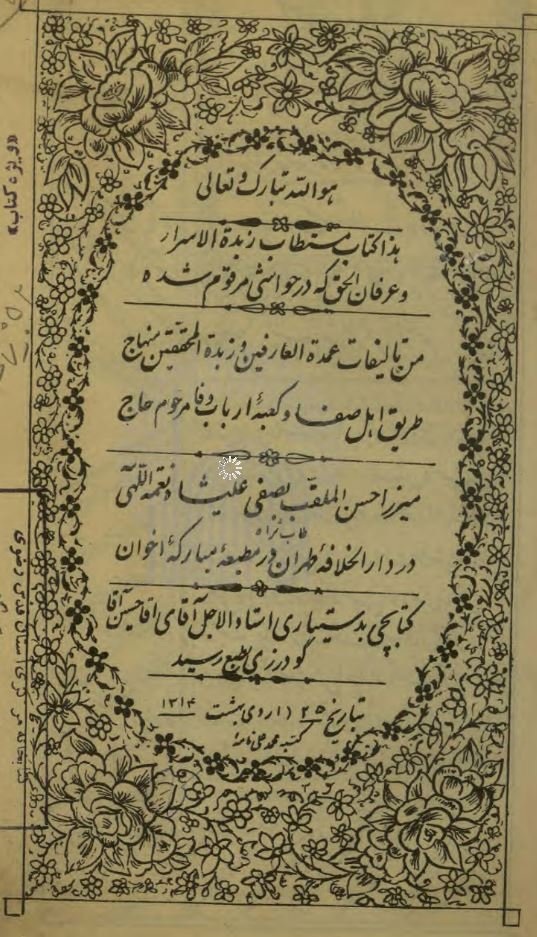 هو الله تبارک و تعالی
هذا کتاب مستطاب زبدة الاسرار
و عرفان الحق که در حواشی مرقوم شده
من تالیفات عمدة العارفین و زبدة المحققین منهاج
طریق اهل صفا و کعبهٔ ارباب وفا مرحوم حاج
میرزا حسن الملقب بصفی علیشاه نعمة اللهی
طاب ثراه
در دار الخلافهٔ طهران در مطبعهٔ مبارکهٔ اخوان
کتابچی بدستیاری استاد الاجل آقای آقا حسین آقا
گودرزی بطبع رسید
بتاریخ ۲۵ اردی بهشت ۱۳۱۴
کتبه محمد علی
«ویژه کتاب»
آستان قدس رضوی